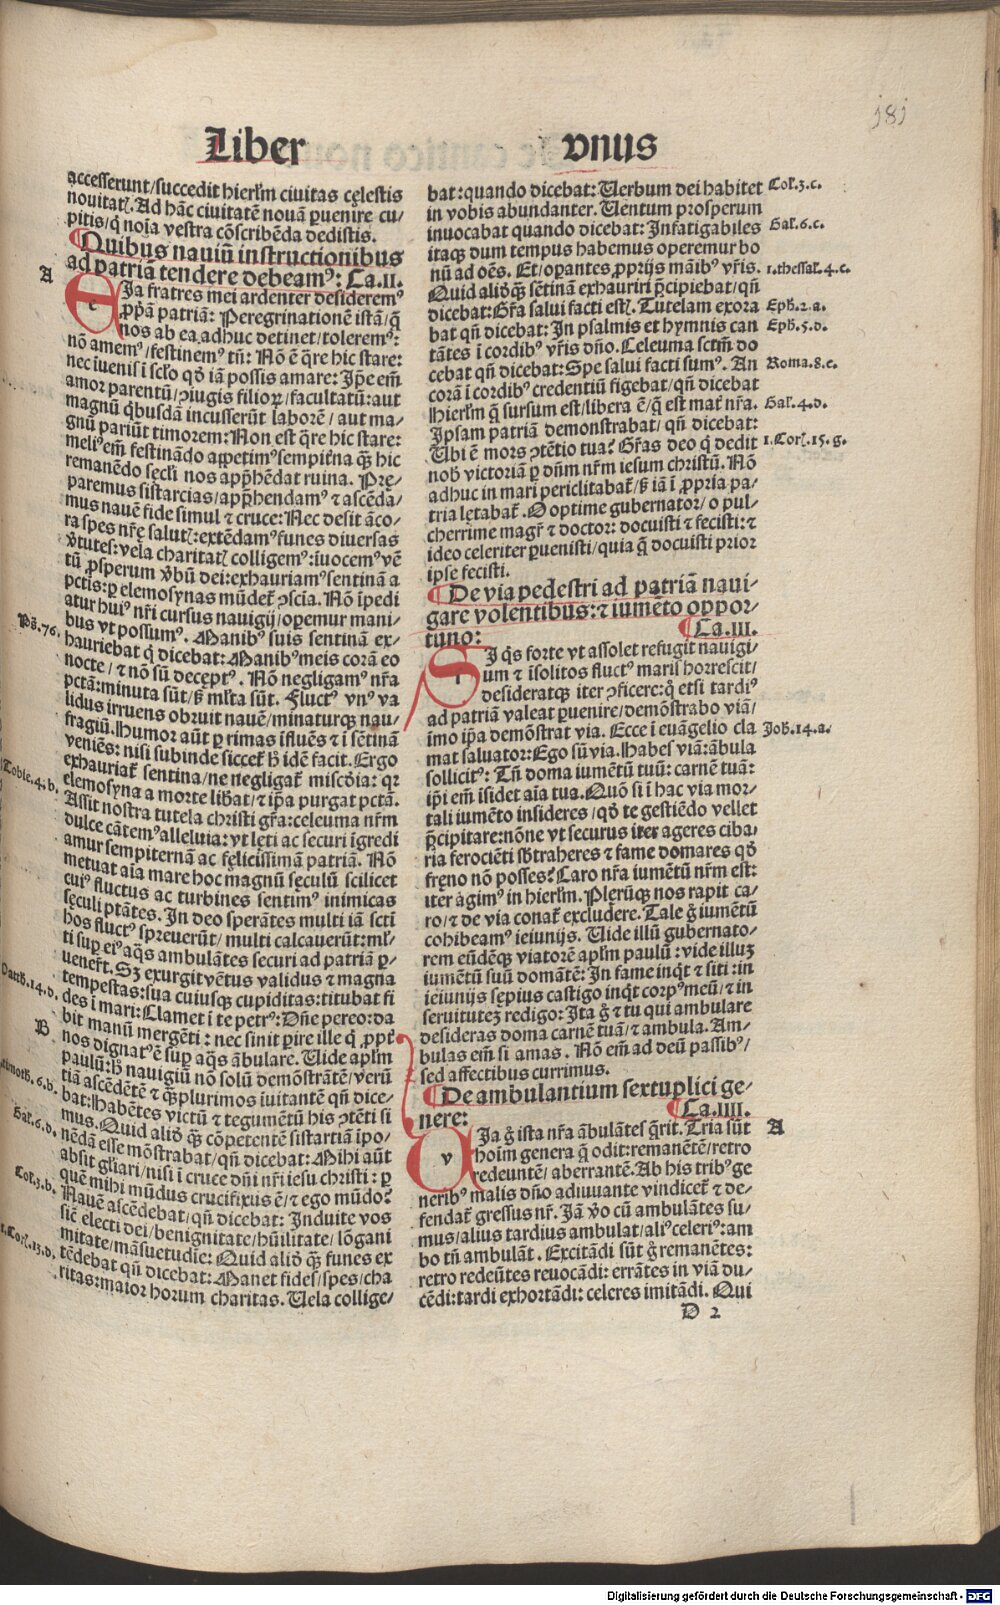 181
Liber vnus
accesserunt/succedit hierl̃m ciuitas cęlestis
nouitatꝭ. Ad hãc ciuitatẽ nouã ꝑuenire cu⸗
pitis/q̃ noĩa vestra cõscribẽda dedistis.
¶Quibus nauiũ instructionibus
ad patriã tendere debeamꝰ: Ca.II.
A
e
EJa fratres mei ardenter desideremꝰ
ꝓpriã patriã: Peregrinationẽ istã/q̃
nos ab ea adhuc detinet/toleremꝰ:
nõ amemꝰ/festinemꝰ tñ: Nõ ẽ q̃re hic stare:
nec iuenis ĩ scl̃o qd̃ iã possis amare: Ip̃e em̃
amor parentũ/ꝯiugis filioꝝ/facultatũ: aut
magnũ q̃busdã incusserũt laborẽ/aut ma⸗
gnũ pariũt timorem: Non est q̃re hic stare:
meliꝰ em̃ festinãdo appetimꝰ sempit̃na q̃ȝ hic
remanẽdo sęcl̃i nos app̃hẽdat ruina. Prę⸗
paremus sistarcias/app̃hendamꝰ ⁊ ascẽda⸗
mus nauẽ fide simul ⁊ cruce: Nec desit ãco⸗
ra spes nr̃ę salutꝭ: extẽdamꝰ funes diuersas
v̓tutes: vela charitatꝭ colligemꝰ: iuocemꝰ vẽ
tũ ꝓsperum v̓bũ dei: exhauriamꝰ sentinã a
pctĩs: ꝑ elemosynas mũdet̃ ꝯscia. Nõ ĩpedi
atur huiꝰ nr̃i cursus nauigij/oꝑemur mani⸗
bus vt possumꝰ. Manibꝰ suis sentinã ex⸗
Pŝ.76.
hauriebat q̃ dicebat: Manibꝰ meis corã eo
nocte/⁊ nõ sũ deceptꝰ. Nõ negligamꝰ nr̃a
pctã: minuta sũt/ß ml̃ta sũt. Fluctꝰ vnꝰ va
lidus irruens obruit nauẽ/minaturqȝ nau⸗
fragiũ. Humor aũt ꝑ rimas ĩfluẽs ⁊ ĩ sẽtinã
veniẽs: nisi subinde siccet̃ ħ idẽ facit. Ergo
Tobie.4.b.
exhauriat̃ sentina/ne negligat̃ miscd̃ia: qꝛ
elemosyna a morte lib̃at/⁊ ip̃a purgat pctã.
Assit nostra tutela christi gr̃a: celeuma nr̃m
dulce cãtemꝰ alleluia: vt lęti ac securi ĩgredi
amur sempiternã ac fęlicissimã patriã. Nõ
metuat aĩa mare hoc magnũ sęculũ scilicet
cuiꝰ fluctus ac turbines sentimꝰ inimicas
sęculi ptãtes. In deo sperãtes multi iã sctĩ
hos fluctꝰ spreuerũt/multi calcauerũt: ml̃⸗
ti suꝑ eiꝰ aq̃s ambulãtes securi ad patriã ꝑ⸗
uener̃t. Sȝ exurgit vẽtus validus ⁊ magna
Matth.14.d.
tempestas: sua cuiusqȝ cupiditas: titubat fi
des ĩ mari: Clamet ĩ te petrꝰ: Dñe pereo: da
B
bit manũ mergẽti: nec sinit ꝑire ille q̃ ꝓpt̃
nos dignatꝰ ẽ suꝑ aq̃s ãbulare. Uide apl̃m
paulũ: ħ nauigiũ nõ solũ demõstrãtẽ/verũ
.timoth.6.b.
tiã ascẽdẽtẽ ⁊ q̃ȝplurimos iuitantẽ qñ dice⸗
bat: Habẽtes victũ ⁊ tegumẽtũ his ꝯtẽti si
mus. Quid alið q̃ȝ cõpetentẽ sistartiã ĩpo⸗
Gal̃.6.d.
nẽdã esse mõstrabat/qñ dicebat: Mihi aũt
absit gl̃iari/nisi ĩ cruce dñi nr̃i iesu christi: ꝑ
quẽ mihi mũdus crucifixus ẽ/⁊ ego mũdo?
Col.3.b.
Nauẽ ascẽdebat/qñ dicebat: Induite vos
sic̃ electi dei/benignitate/hũilitate/lõgani
mitate/mãsuetudiẽ: Quid alið q̃ȝ funes ex
1.Corꝭ.13.d.
tẽdebat qñ dicebat: Manet fides/spes/cha
ritas: maior horum charitas. Uela collige⸗
bat: quando dicebat: Uerbum dei habitet
Col.3.c.
in vobis abundanter. Uentum prosperum
inuocabat quando dicebat: Infatigabiles
Gal̃.6.c.
itaqȝ dum tempus habemus operemur bo
nũ ad oẽs. Et/oꝑantes ꝓprijs mãibꝰ vr̃is.
1.thessal̃.4.c.
Quid alið q̃ȝ sẽtinã exhauriri p̃cipiebat/qñ
dicebat: Gr̃a salui facti estꝭ. Tutelam exora
Eph̃.2.a.
bat qñ dicebat: In psalmis et hymnis can
Eph̃.5.d.
tãtes ĩ cordibꝰ vr̃is dño. Celeuma sctm̃ do
cebat qñ dicebat: Spe salui facti sumꝰ. An
Roma.8.c.
corã ĩ cordibꝰ credentiũ figebat/qñ dicebat
Hierl̃m q̃ sursum est/libera ẽ/q̃ est mat̃ nr̃a.
Gal̃.4.d.
Ipsam patriã demonstrabat/qñ dicebat:
Ubi ẽ mors ꝯtẽtio tua? Gr̃as deo q̃ dedit
1.Corꝭ.15.g.
nob̃ victoriã ꝑ dñm nr̃m iesum christũ. Nõ
adhuc in mari periclitabat̃/ß iã ĩ ꝓpria pa⸗
tria lętabat̃. O optime gubernator/o pul⸗
cherrime magr̃ ⁊ doctor: docuisti ⁊ fecisti: ⁊
ideo celeriter ꝑuenisti/quia q̃ docuisti prior
ipse fecisti.
¶De via pedestri ad patriã naui⸗
gare volentibus: ⁊ iumẽto oppor⸗
tuno: ¶Ca.III.
SJ q̃s forte vt assolet refugit nauigi⸗
um ⁊ ĩsolitos fluctꝰ maris horrescit/
desideratqȝ iter ꝯficere: q̃ etsi tardiꝰ
ad patriã valeat ꝑuenire/demõstrabo viã/
ĩmo ip̃a demõstrat via. Ecce ĩ euãgelio cla
Joh̃.14.a.
mat saluator: Ego sũ via. Habes viã: ãbula
sollicitꝰ: Tñ doma iumẽtũ tuũ: carnẽ tuã:
ip̃i em̃ ĩsidet aĩa tua. Quõ si ĩ hac via mor⸗
tali iumẽto insideres/qð te gestiẽdo vellet
p̃cipitare: nõne vt securus iter ageres ciba⸗
ria ferociẽti sb̃traheres ⁊ fame domares qð
fręno nõ posses? Caro nr̃a iumẽtũ nr̃m est:
iter ãgimꝰ in hierl̃m. Plerũqȝ nos rapit ca⸗
ro/⁊ de via conat̃ excludere. Tale g̃ iumẽtũ
cohibeamꝰ ieiunijs. Uide illũ gubernato⸗
rem eũdẽqȝ viatorẽ apl̃m paulũ: vide illuȝ
iumẽtũ suũ domãtẽ: In fame inqt̃ ⁊ siti: in
ieiunijs sępius castigo inqt̃ corpꝰ meũ/⁊ in
seruituteȝ redigo: Ita g̃ ⁊ tu qui ambulare
desideras doma carnẽ tuã/⁊ ambula. Am⸗
bulas em̃ si amas. Nõ em̃ ad deũ passibꝰ/
sed affectibus currimus.
¶De ambulantium sextuplici ge⸗
nere: ¶Ca.IIII.
A
v
UJa g̃ ista nr̃a ãbulãtes q̃rit. Tria sũt
hoĩm genera q̃ odit: remanẽtẽ/retro
redeuntẽ/aberrantẽ. Ab his tribꝰ ge
neribꝰ malis dño adiuuante vindicet̃ ⁊ de⸗
fendat̃ gressus nr̃. Jã v̓o cũ ambulãtes su⸗
mus/alius tardius ambulat/aliꝰ celeriꝰ: am
bo tñ ambulãt. Excitãdi sũt g̃ remanẽtes:
retro redeũtes reuocãdi: errãtes in viã du⸗
cẽdi: tardi exhortãdi: celeres imitãdi. Qui
D 2
Digitalisierung gefördert durch die Deutsche Forschungsgemeinschaft - DFG